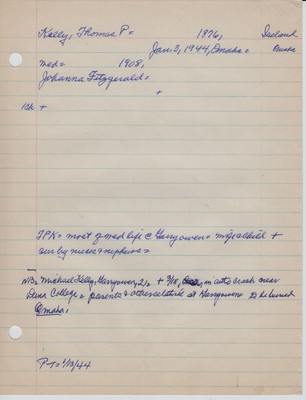 Kelly, Thomas P = 1876, Ireland
Jan. 3, 1944, Omaha =
med = 1908,
Johanna Fitzgerald =
+
1ch +
TPK = most of med life c Garryowen = wife & child +
sur by nieces & nephews =
NB = Michael Kelly, Garryowen, 21, + 3/18, in auto crash near
Dana College = parents & other relatives at Garryowen to be buried
Omaha,
P-T = 1/13/44